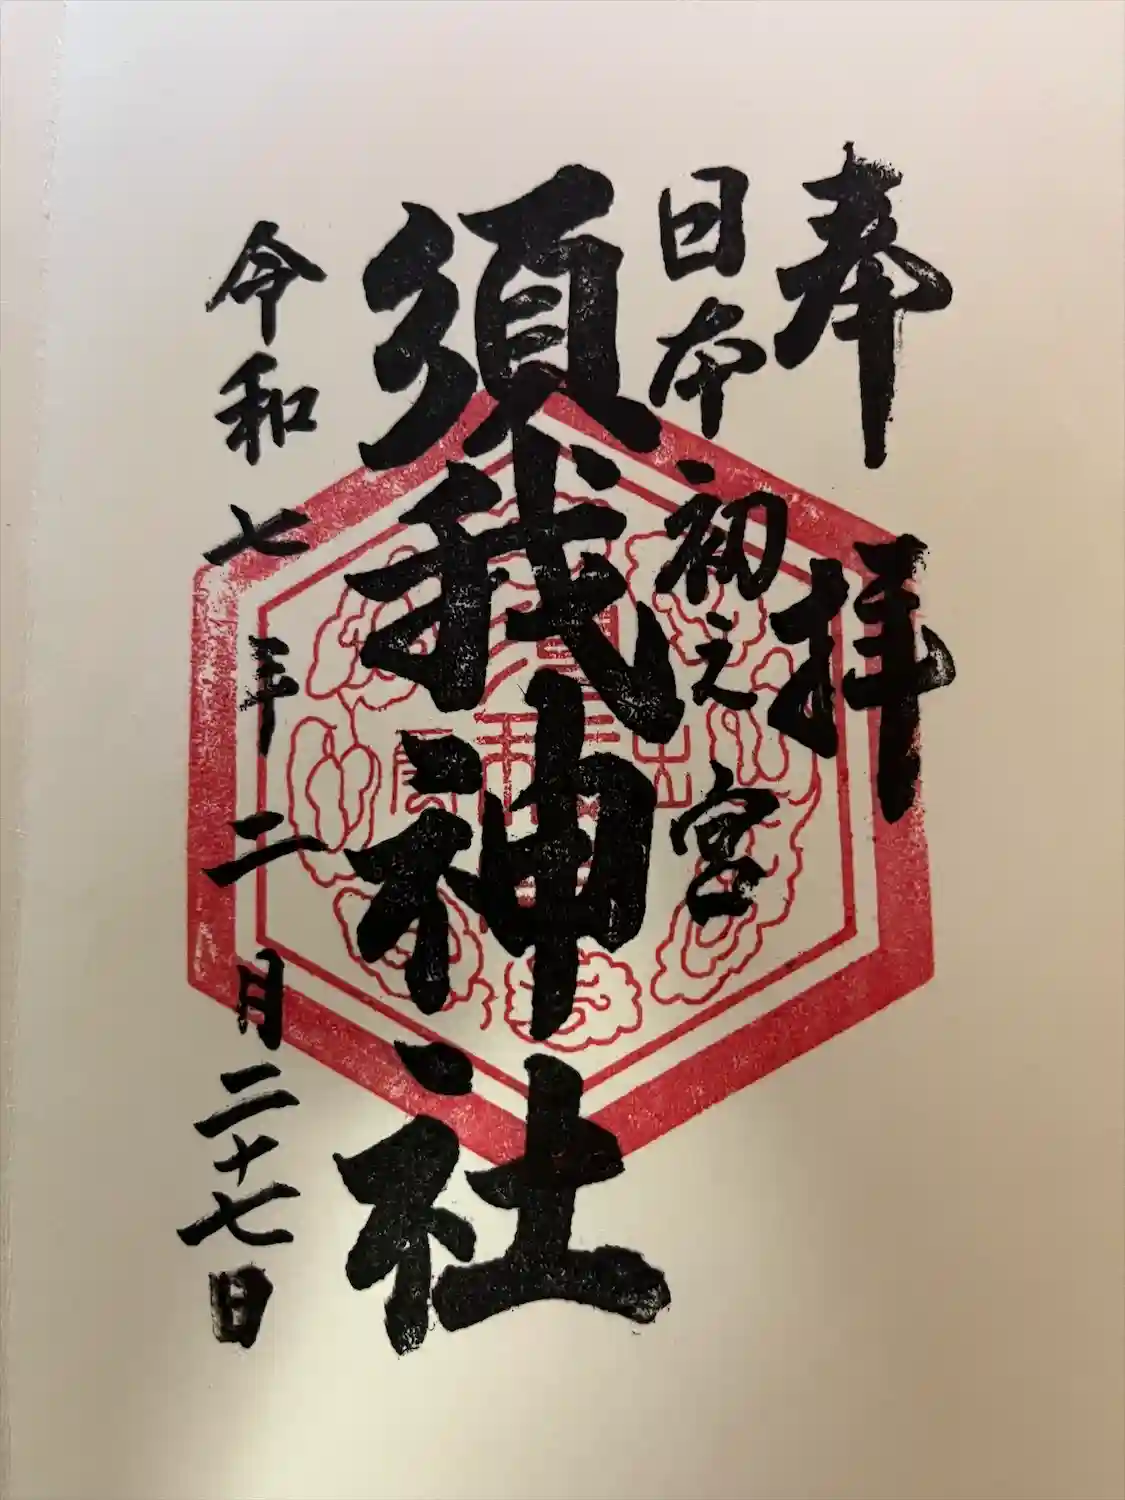 奉拝
日本初之宮
須我神社
令和七年二月二十七日